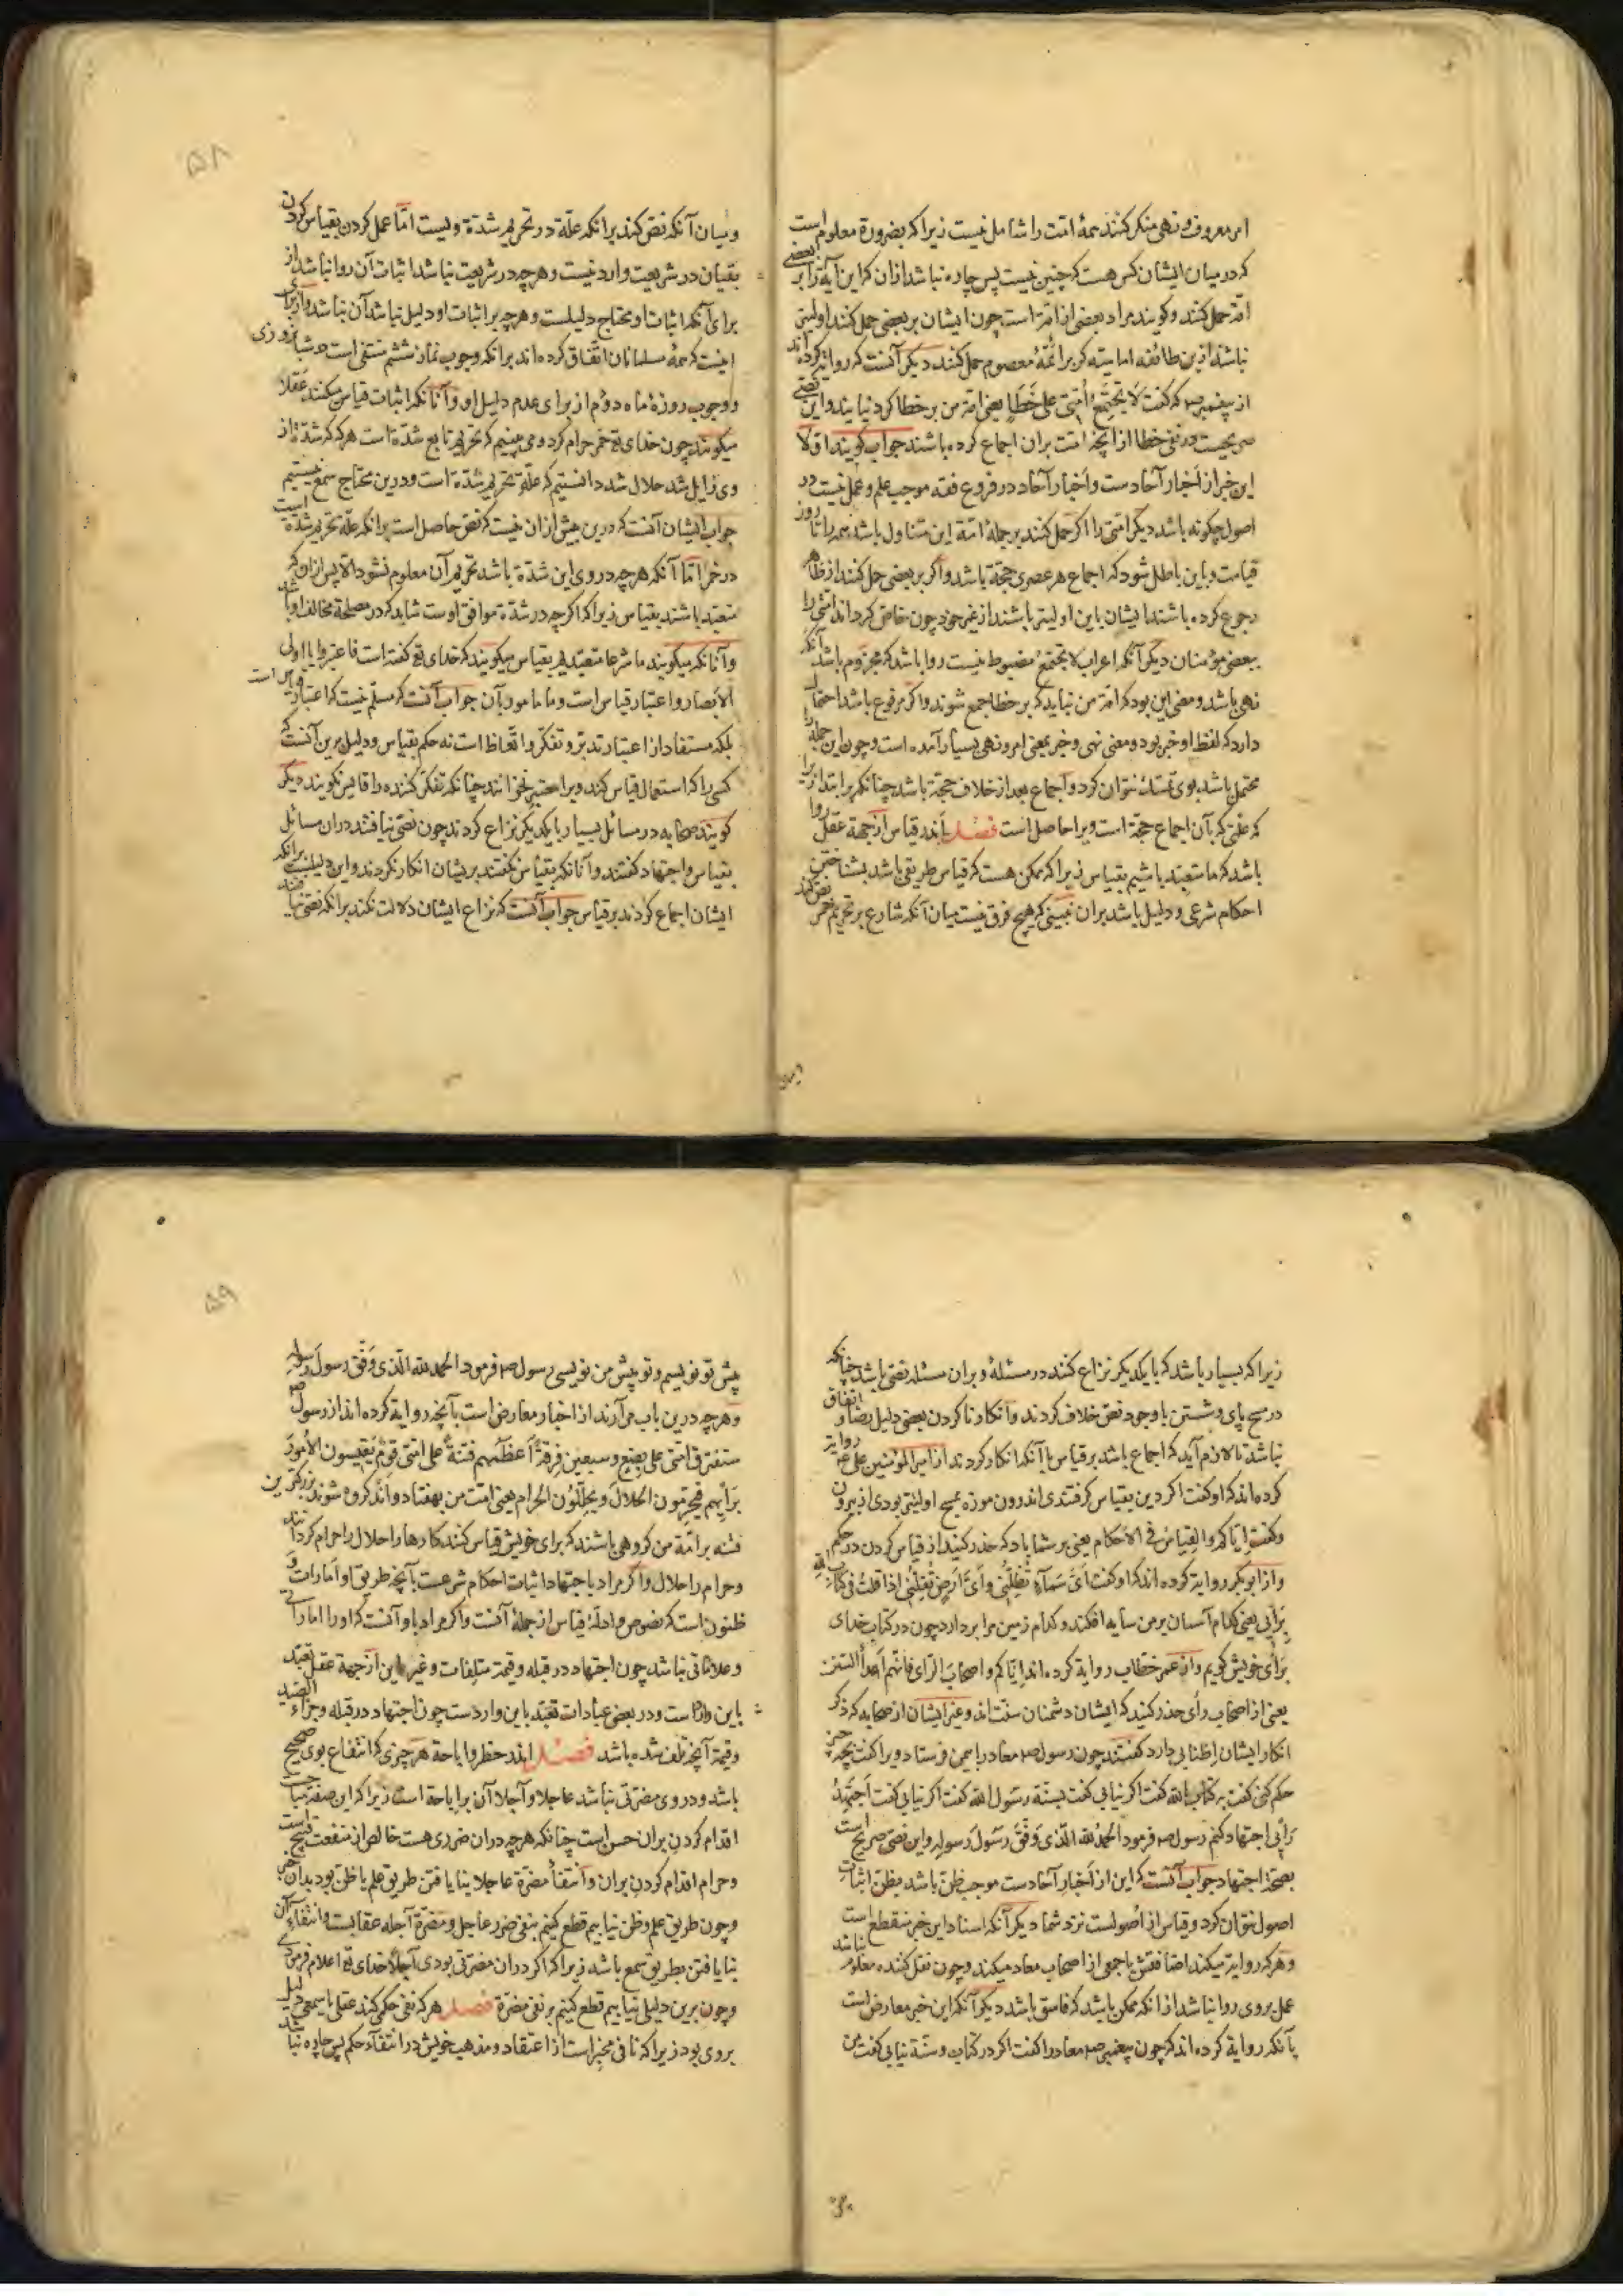 امر معروف و نهی منکر کنند همهٔ امت را شامل نیست زیرا که بضرورة معلوم است
که در میان ایشان کس هست که چنین نیست پس چاره نباشد از ان که این آیة را بر بعضی
امّة حمل کنند و گویند مراد بعضی از امّة است چون ایشان بر بعضی حمل کنند اولیتر
نباشد از این طائفه امامیّه که بر ائمّهٔ معصوم حمل کنند دیگر آنست که روایة کرده‌اند
از پیغمبر صم که گفت لا یجتمع اُمّتی علی خَطَاٍ یعنی امة من بر خطا گرد نیایند و این نصّی
صریحست در نفی خطا از آنچه امّت بران اجماع کرده باشند جواب گویند اوّلا
این خبر از اَخبار آحادست و اَخبار آحاد در فروع فقه موجب علم و عمل نیست در
اصول چگونه باشد دیگر امّتی را اگر حمل کنند بر جملهٔ امّة این متناول باشد همه را تا روز
قیامت و باین باطل شود که اجماع هر عصری حجّة باشد و اگر بر بعضی حمل کنند از ظاهر
رجوع کرده باشند ایشان باین اولیتر باشند از غیر خود چون خاص کرده‌اند امّتی را
ببعضی مؤمنان دیگر آنکه اعراب لا یجتمع مضبوط نیست روا باشد که مجزوم باشد و آنگه
نهی باشد و معنی این بود که امّة من نباید که بر خطا جمع شوند و اگر مرفوع باشد احتمال
دارد که لفظ او خبر بود و معنی نهی و خبر بمعنی امر و نهی بسیار آمده است و چون این جمله را
محتمل باشد بوی تمسّک نتوان کرد و اجماع بعد از خلاف حجّة باشد چنانکه بر ابتدا زیرا
که علّتی که بآن اجماع حجّة است ویرا حاصل است فصل بدانکه قیاس از جهة عقل روا
باشد که ما متعبّد باشیم بقیاس زیرا که ممکن هست که قیاس طریقی باشد بشناختن
احکام شرعی و دلیل باشد بران نبینی که هیچ فرق نیست میان آنکه شارع بر تحریم خمر نصّ کند
ومیان
۵۸
و میان آنکه نص کند بر انکه علّة در تحریم شدّة ویست امّا عمل کردن بقیاس کردن
بقیاس در شریعت وارد نیست و هر چه در شریعت نباشد اثبات آن روا نباشد از
برای آنکه اثبات او محتاج دلیلست و هر چه بر اثبات او دلیل نباشد آن نباشد و از برای
اینست که همهٔ مسلمانان اتّفاق کرده‌اند بر انکه وجوب نماز ششم منتفی است در شبانروزی
و وجوب روزهٔ ماه دوم از برای عدم دلیل او و آنانکه اثبات قیاس میکنند عقلا
میگویند چون خدای تع خمر حرام کرد و می‌بینیم که تحریم تابع شدّة است هر گه که شدّة از
وی زایل شد حلال شد دانستیم که علّة تحریم شدّة است و درین محتاج سمع نیستیم
جواب ایشان آنست که درین بیش ازان نیست که نص حاصل است بر انکه علّة تحریم شدّة است
در خمر امّا آنکه هر چه در وی این شدّة باشد تحریم آن معلوم نشود الا پس از ان که
متعبّد باشند بقیاس زیرا که اگر چه در شدّة موافق اوست شاید که در مصلحة مخالف او باشد
و آنانکه میگویند ما شرعا متعبّدیم بقیاس میگویند که خدای تع گفته است فاعتبروا یا اولی
الاَبصار و اعتبار قیاس است و ما مامور بآن جواب آنست که مسلّم نیست که اعتبار قیاس است
بلکه مستفاد از اعتبار تدبّر و تفکّر و اتّعاظ است نه حکم بقیاس و دلیل برین آنست که
کسی را که استعمال قیاس کند ویرا معتبر نخوانند چنانکه تفکّر کننده را قایس نگویند دیگر
گویند صحابه در مسائل بسیار با یکدیگر نزاع کردند چون نصّی نیافتند دران مسائل
بقیاس و اجتهاد گفتند و آنانکه بقیاس نگفتند بریشان انکار نکردند و این دلیلست بر انکه
ایشان اجماع کردند بر قیاس جواب آنست که نزاع ایشان دلالت نکند بر انکه نصّی نیافتند
زیرا که بسیار باشد که با یکدیگر نزاع کنند در مسئلهٔ و بران مسئله نصّی باشد چنانکه
در مسح پای و شستن با وجود نص خلاف کردند و انکار ناکردن بعضی دلیل رضا و اتفاق
نباشد تا لازم آید که اجماع باشد بر قیاس با آنکه انکار کردند از امیر المؤمنین علی ع روایة
کرده‌اند که او گفت اگر دین بقیاس گرفتندی اندرون موزه بمسح اولیتر بودی از بیرون
و گفت اِیّاکم و القِیاس فی الاَحکام یعنی بر شما باد که حذر کنید از قیاس کردن در حکم
و از ابوبکر روایة کرده‌اند که او گفت اَیُّ سَمَاءٍ تُظِلّنی و اَیُّ اَرضٍ تُقِلّنی اذا قلت فی کتاب الله
بِرَأیی یعنی کدام آسمان بر من سایه افکند و کدام زمین مرا بردارد چون در کتاب خدای
برای خویش گویم و از عمر خطّاب روایة کرده‌اند اِیّاکم و اصحاب الرّای فانّهم اَعداُ السّنن
یعنی از اصحاب رأی حذر کنید که ایشان دشمنان سنّت‌اند و غیر ایشان از صحابه که ذکر
انکار ایشان اطنابی دارد گفتند چون رسول صم معاد را بیمن فرستاد ویرا گفت بچه چیز
حکم کنی گفت به کتاب الله گفت اگر نیابی گفت بسنّة رسول الله گفت اگر نیابی گفت اَجتهدُ
رَأیی اجتهاد کنم رسول صم فرمود اَلحمدُ لله الّذی وَفّقَ رسولَ رسولِه و این نصّی صریح است
بصحّة اجتهاد جواب آنست که این از اَخبار آحادست موجب ظن باشد بظن اثبات
اصول نتوان کرد و قیاس از اُصولست نزد شما دیگر آنکه اسناد این خبر منقطع است
و هر که روایة میکند اضافتش با جمعی از اصحاب معاد میکند و چون نقل کننده معلوم نباشد
عمل بر وی روا نباشد از انکه ممکن باشد که فاسق باشد دیگر آنکه این خبر معارض است
بآنکه روایة کرده‌اند که چون پیغمبر صم معاد را گفت اگر در کتاب و سنّة نیابی گفت من
۵۹
پیش تو نویسم و تو پیش من نویسی رسول صم فرمود الحمد لله الّذی وَفّق رسولَ رسوله
و هر چه درین باب می‌آرند از اخبار معارض است بآنچه روایة کرده‌اند از رسول صم
ستفترق امّتی علی بِضعٍ و سبعین فِرقةً اَعظمهم فتنةً علی امّتی قومٌ یَقیسون الاُمورَ
بِرَأیهم فیحرّمون الحلالَ و یحلّلُون الحرام یعنی امّت من بهفتاد و اند گروه شوند بزرگترین
فتنه بر امّة من گروهی باشند که برای خویش قیاس کنند کارها را حلال را حرام گردانند
و حرام را حلال و اگر مراد باجتهاد اثبات احکام شرعست بآنچه طریق او امارات و
ظنون است که نصوص و ادلّهٔ قیاس از جملهٔ آنست و اگر مراد باو آنست که او را اماراتی
و علاماتی نباشد چون اجتهاد در قبله و قیمة متلفات و غیر این از جهة عقل تعبّد
باین رواست و در بعضی عبادات تعبّد باین واردست چون اجتهاد در قبله و جزاء الصّید
و قیمة آنچه تلف شده باشد فصل اندر حظر و اباحة هر چیزی که انتفاع بوی صحیح
باشد و در وی مضرّتی نباشد عاجلا و آجلا آن بر اباحة است زیرا که این صفة
اقدام کردن بران حسن است چنانکه هر چه دران ضرری هست خالص از منفعت قبیح است
و حرام اقدام کردن بران و انتفاُ مضرّة عاجلا بنایافتن طریق علم یا ظن بود بدان
و چون طریق علم و ظن نیابیم قطع کنیم بنفی ضرر عاجل و مضرّة آجله عقابست و انتفاءِ آن
بنایافتن بطریق سمع باشد زیرا که اگر دران مضرّتی بودی آجلا خدای تع اعلام فرمودی
و چون برین دلیلی نیابیم قطع کنیم بر نفی مضرّة فصل هر که نفی حکمی کند عقلی یا سمعی دلیل
بر وی بود زیرا که نافی مخبر است از اعتقاد و مذهب خویش در انتفاء حکم پس چاره نباشد